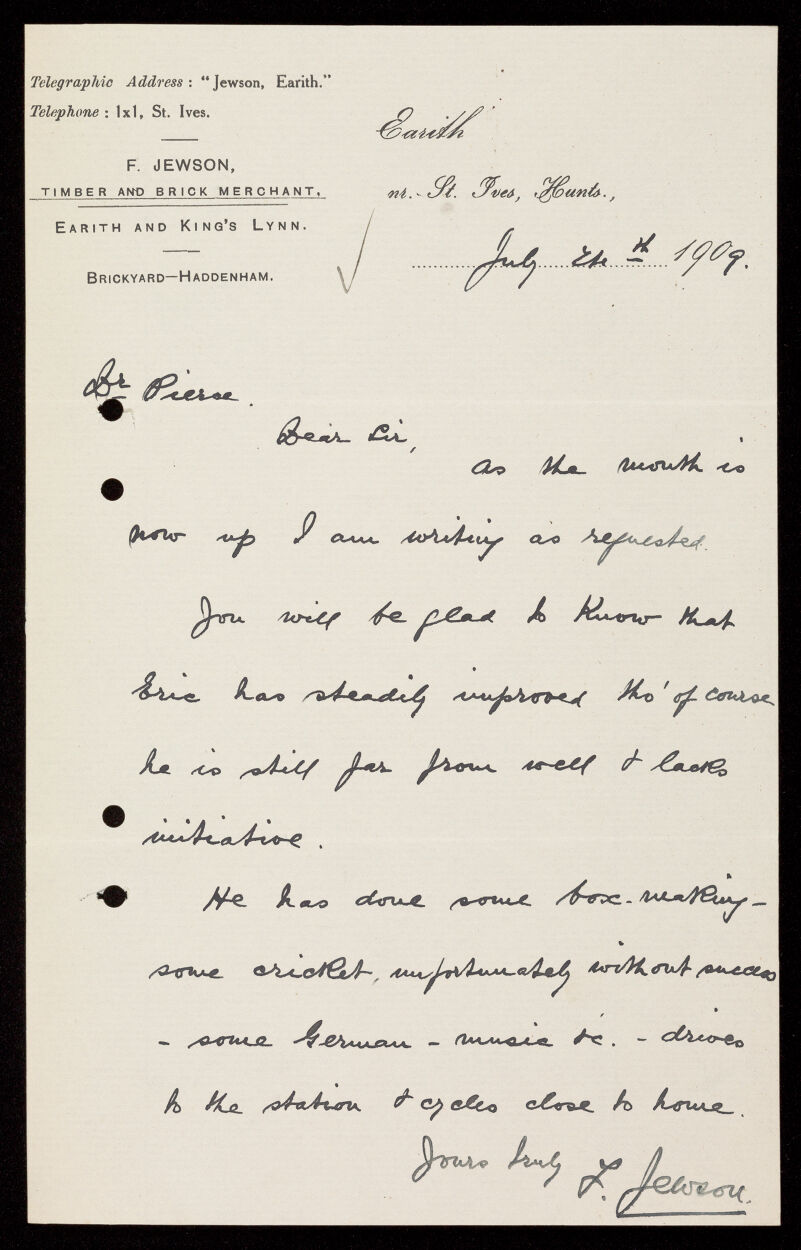 Telegraphic Address: "Jewson, Earith."
Telephone: 1x1, St. Ives.
F. JEWSON,
TIMBER AND BRICK MERCHANT,
EARITH AND KING'S LYNN.
BRICKYARD—HADDENHAM.
Earith
nr. St. Ives, Hunts.,
July th 1909.
Dr Pierce.
Dear Sir,
as the month is
now up I am writing as requested.
You will be glad to know that
Eric has steadily improved tho' of course
he is still far from well & lacks
initiative.
He has done some box-making -
some cricket, unfortunately without success
- some German - music &c. - drives
to the station & cycles close to home.
Yours truly F. Jewson.